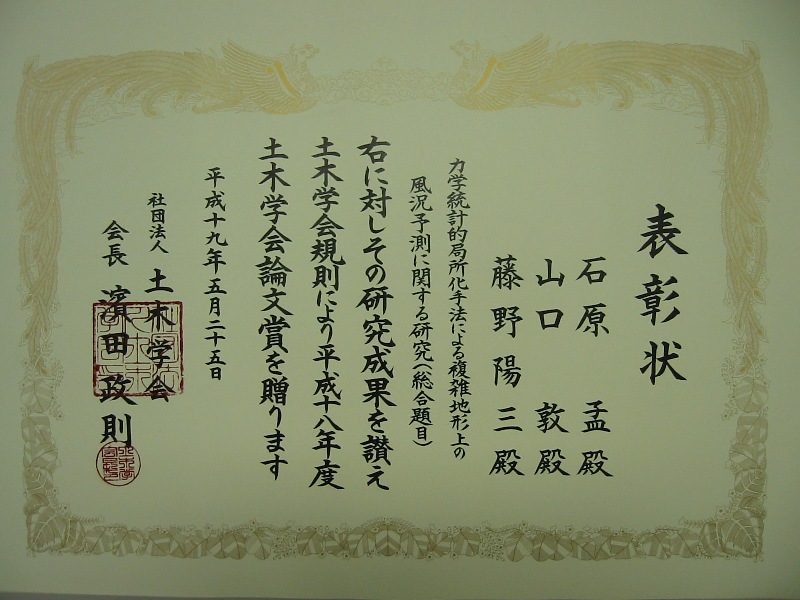 表彰状
石原 孟殿
山口 敦殿
藤野陽三殿
力学統計的局所化手法による複雑地形上の
風況予測に関する研究(総合題目)
右に対しその研究成果を讃え
土木学会規則により平成十八年度
土木学会論文賞を贈ります
平成十九年五月二十五日
社団法人 土木学会
会長 濱田政則